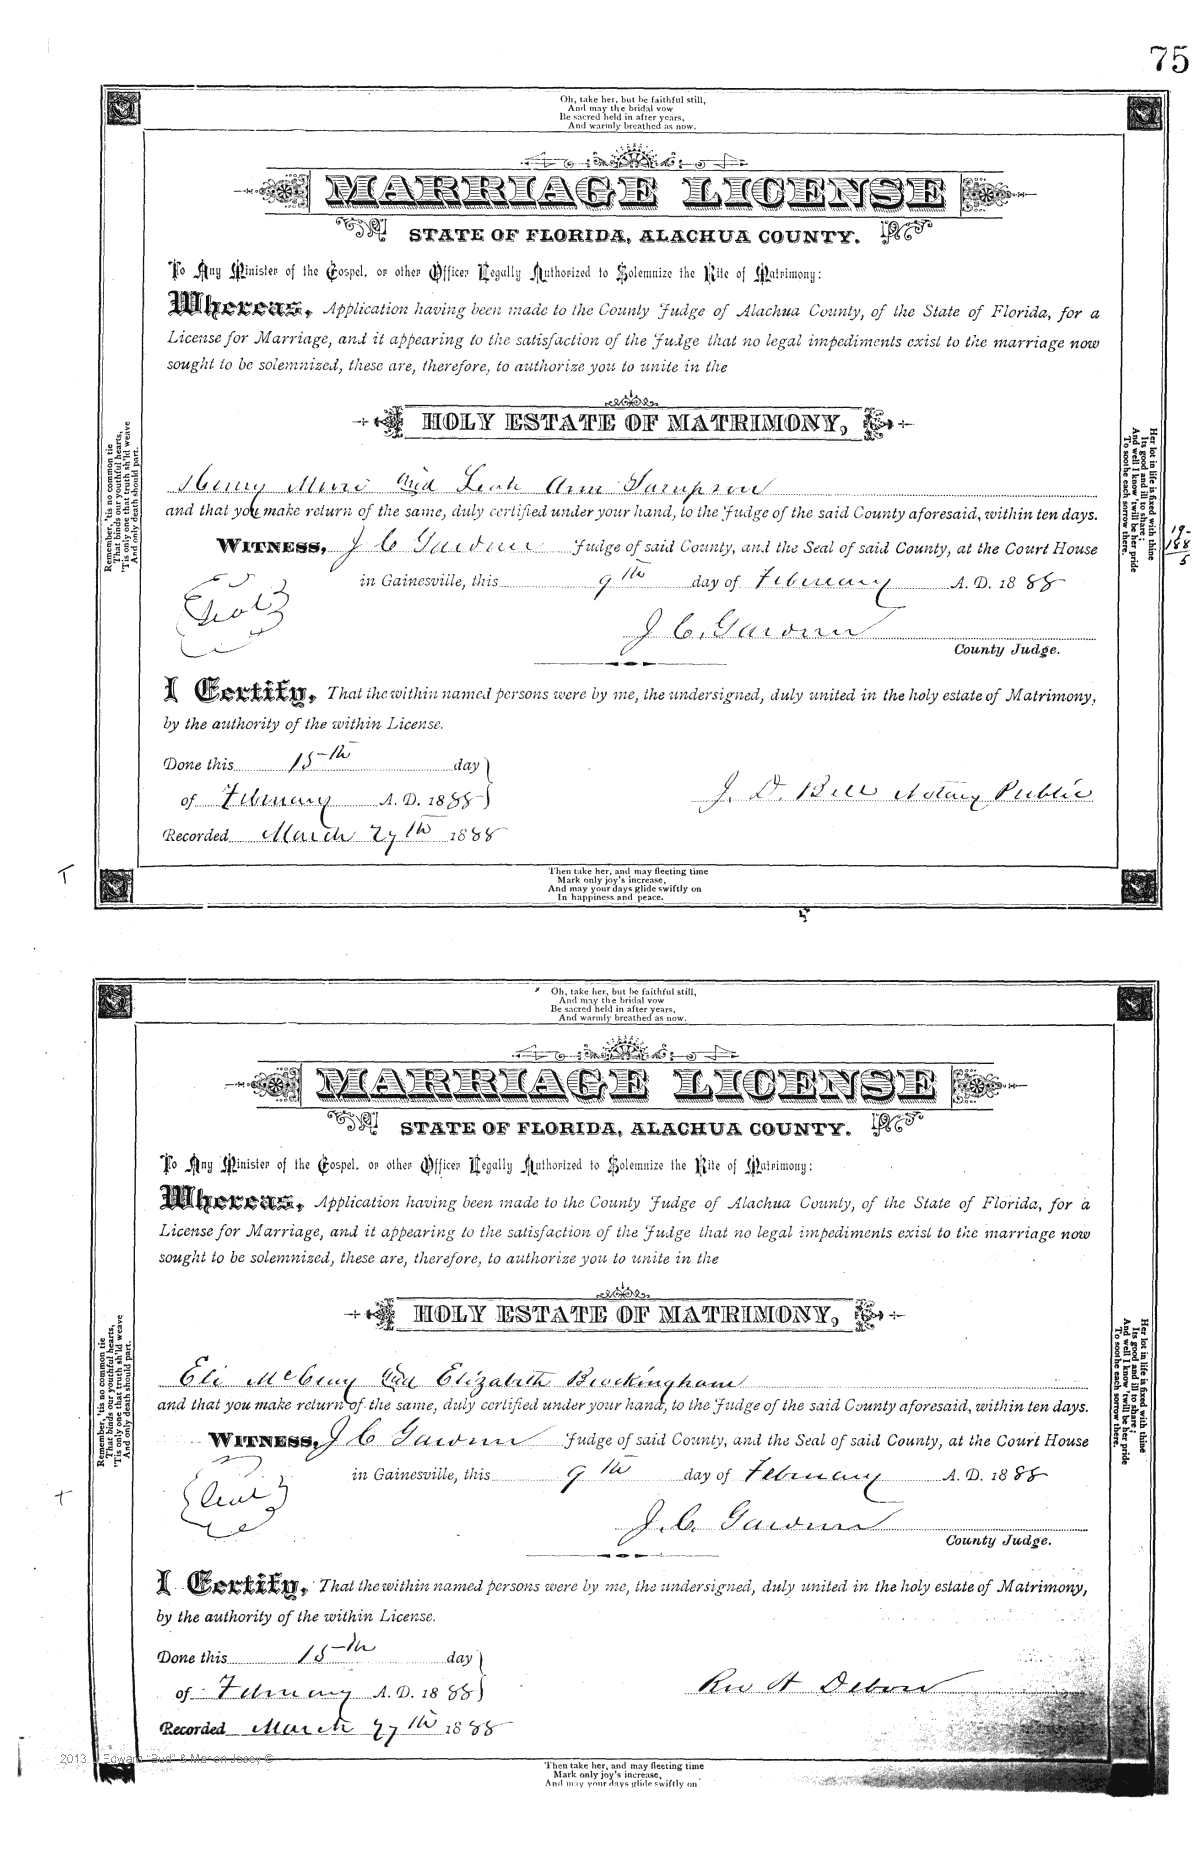 75
Oh, take her, but be faithful still,
And may the bridal vow
Be sacred held in after years,
And warmly breathed as now.
MARRIAGE LICENSE
STATE OF FLORIDA, ALACHUA COUNTY.
To Any Minister of the Gospel, or other Officer Legally Authorized to Solemnize the Rite of Matrimony:
Whereas, Application having been made to the County Judge of Alachua County, of the State of Florida, for a
License for Marriage, and it appearing to the satisfaction of the Judge that no legal impediments exist to the marriage now
sought to be solemnized, these are, therefore, to authorize you to unite in the
HOLY ESTATE OF MATRIMONY,
Henry and Leah Ann Sampson
and that you make return of the same, duly certified under your hand, to the Judge of the said County aforesaid, within ten days.
WITNESS, J C Gardner Judge of said County, and the Seal of said County, at the Court House
in Gainesville, this 9th day of February A. D. 1888
Seal
J. C. Gardner
County Judge.
I Certify, That the within named persons were by me, the undersigned, duly united in the holy estate of Matrimony,
by the authority of the within License.
Done this 15th day
of February A. D. 1888
J. D. Bell Notary Public
Recorded March 27th 1888
Remember, 'tis no common tie
That binds our youthful hearts,
'Tis only one that truth sh'ld weave
And only death should part.
Her lot in life is fixed with thine
Its good and ill to share;
And well I know 'twill be her pride
To soothe each sorrow there.
19-
188
5
T
Then take her, and may fleeting time
Mark only joy's increase,
And may your days glide swiftly on
In happiness and peace.
Oh, take her, but be faithful still,
And may the bridal vow
Be sacred held in after years,
And warmly breathed as now.
MARRIAGE LICENSE
STATE OF FLORIDA, ALACHUA COUNTY.
To Any Minister of the Gospel, or other Officer Legally Authorized to Solemnize the Rite of Matrimony:
Whereas, Application having been made to the County Judge of Alachua County, of the State of Florida, for a
License for Marriage, and it appearing to the satisfaction of the Judge that no legal impediments exist to the marriage now
sought to be solemnized, these are, therefore, to authorize you to unite in the
HOLY ESTATE OF MATRIMONY,
Eli McCray and Elizabeth Brockingham
and that you make return of the same, duly certified under your hand, to the Judge of the said County aforesaid, within ten days.
WITNESS, J C Gardner Judge of said County, and the Seal of said County, at the Court House
in Gainesville, this 9th day of February A. D. 1888
Seal
J. C. Gardner
County Judge.
I Certify, That the within named persons were by me, the undersigned, duly united in the holy estate of Matrimony,
by the authority of the within License.
Done this 15th day
of February A. D. 1888
Rev H Debow
Recorded March 27th 1888
Remember, 'tis no common tie
That binds our youthful hearts,
'Tis only one that truth sh'ld weave
And only death should part.
Her lot in life is fixed with thine
Its good and ill to share;
And well I know 'twill be her pride
To soothe each sorrow there.
2013 Edward "Bud" & Marion Jossy ©
Then take her, and may fleeting time
Mark only joy's increase,
And may your days glide swiftly on